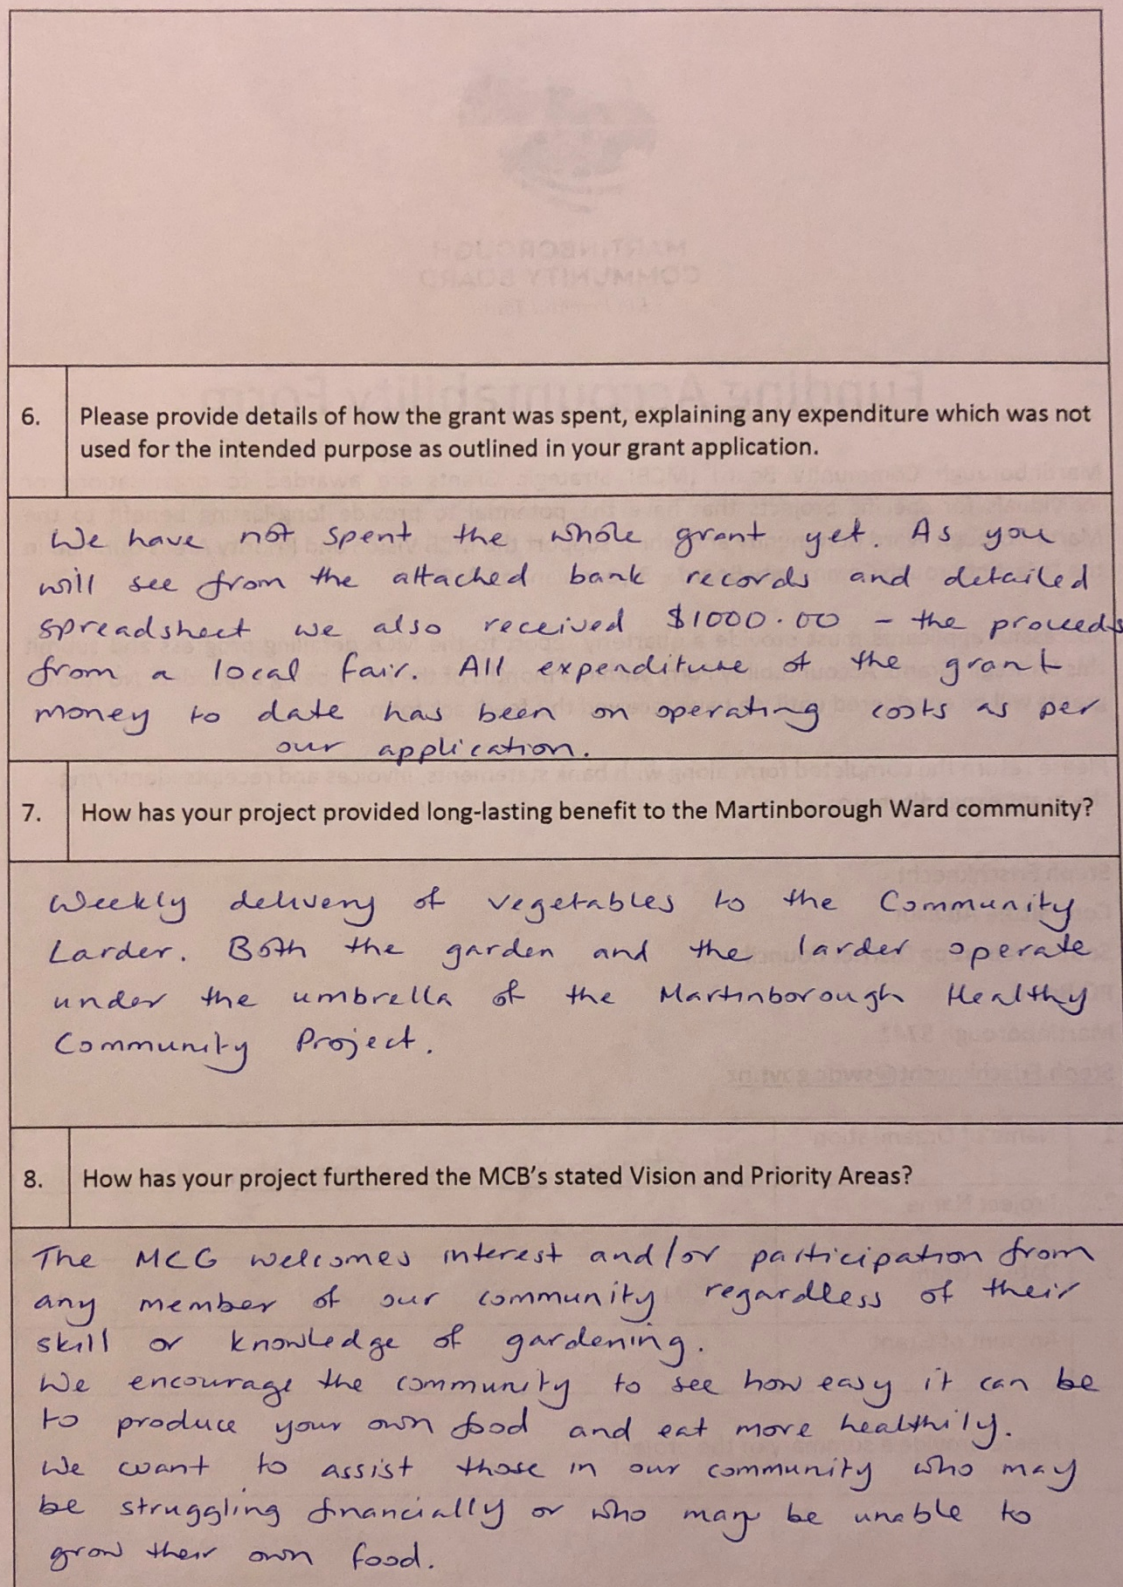 6. Please provide details of how the grant was spent, explaining any expenditure which was not
used for the intended purpose as outlined in your grant application.
We have not spent the whole grant yet. As you
will see from the attached bank records and detailed
spreadsheet we also received $1000.00 - the proceeds
from a local fair. All expenditure of the grant
money to date has been on operating costs as per
our application.
7. How has your project provided long-lasting benefit to the Martinborough Ward community?
Weekly delivery of vegetables to the Community
Larder. Both the garden and the larder operate
under the umbrella of the Martinborough Healthy
Community Project.
8. How has your project furthered the MCB's stated Vision and Priority Areas?
The MCG welcomes interest and/or participation from
any member of our community regardless of their
skill or knowledge of gardening.
We encourage the community to see how easy it can be
to produce your own food and eat more healthily.
We want to assist those in our community who may
be struggling financially or who may be unable to
grow their own food.